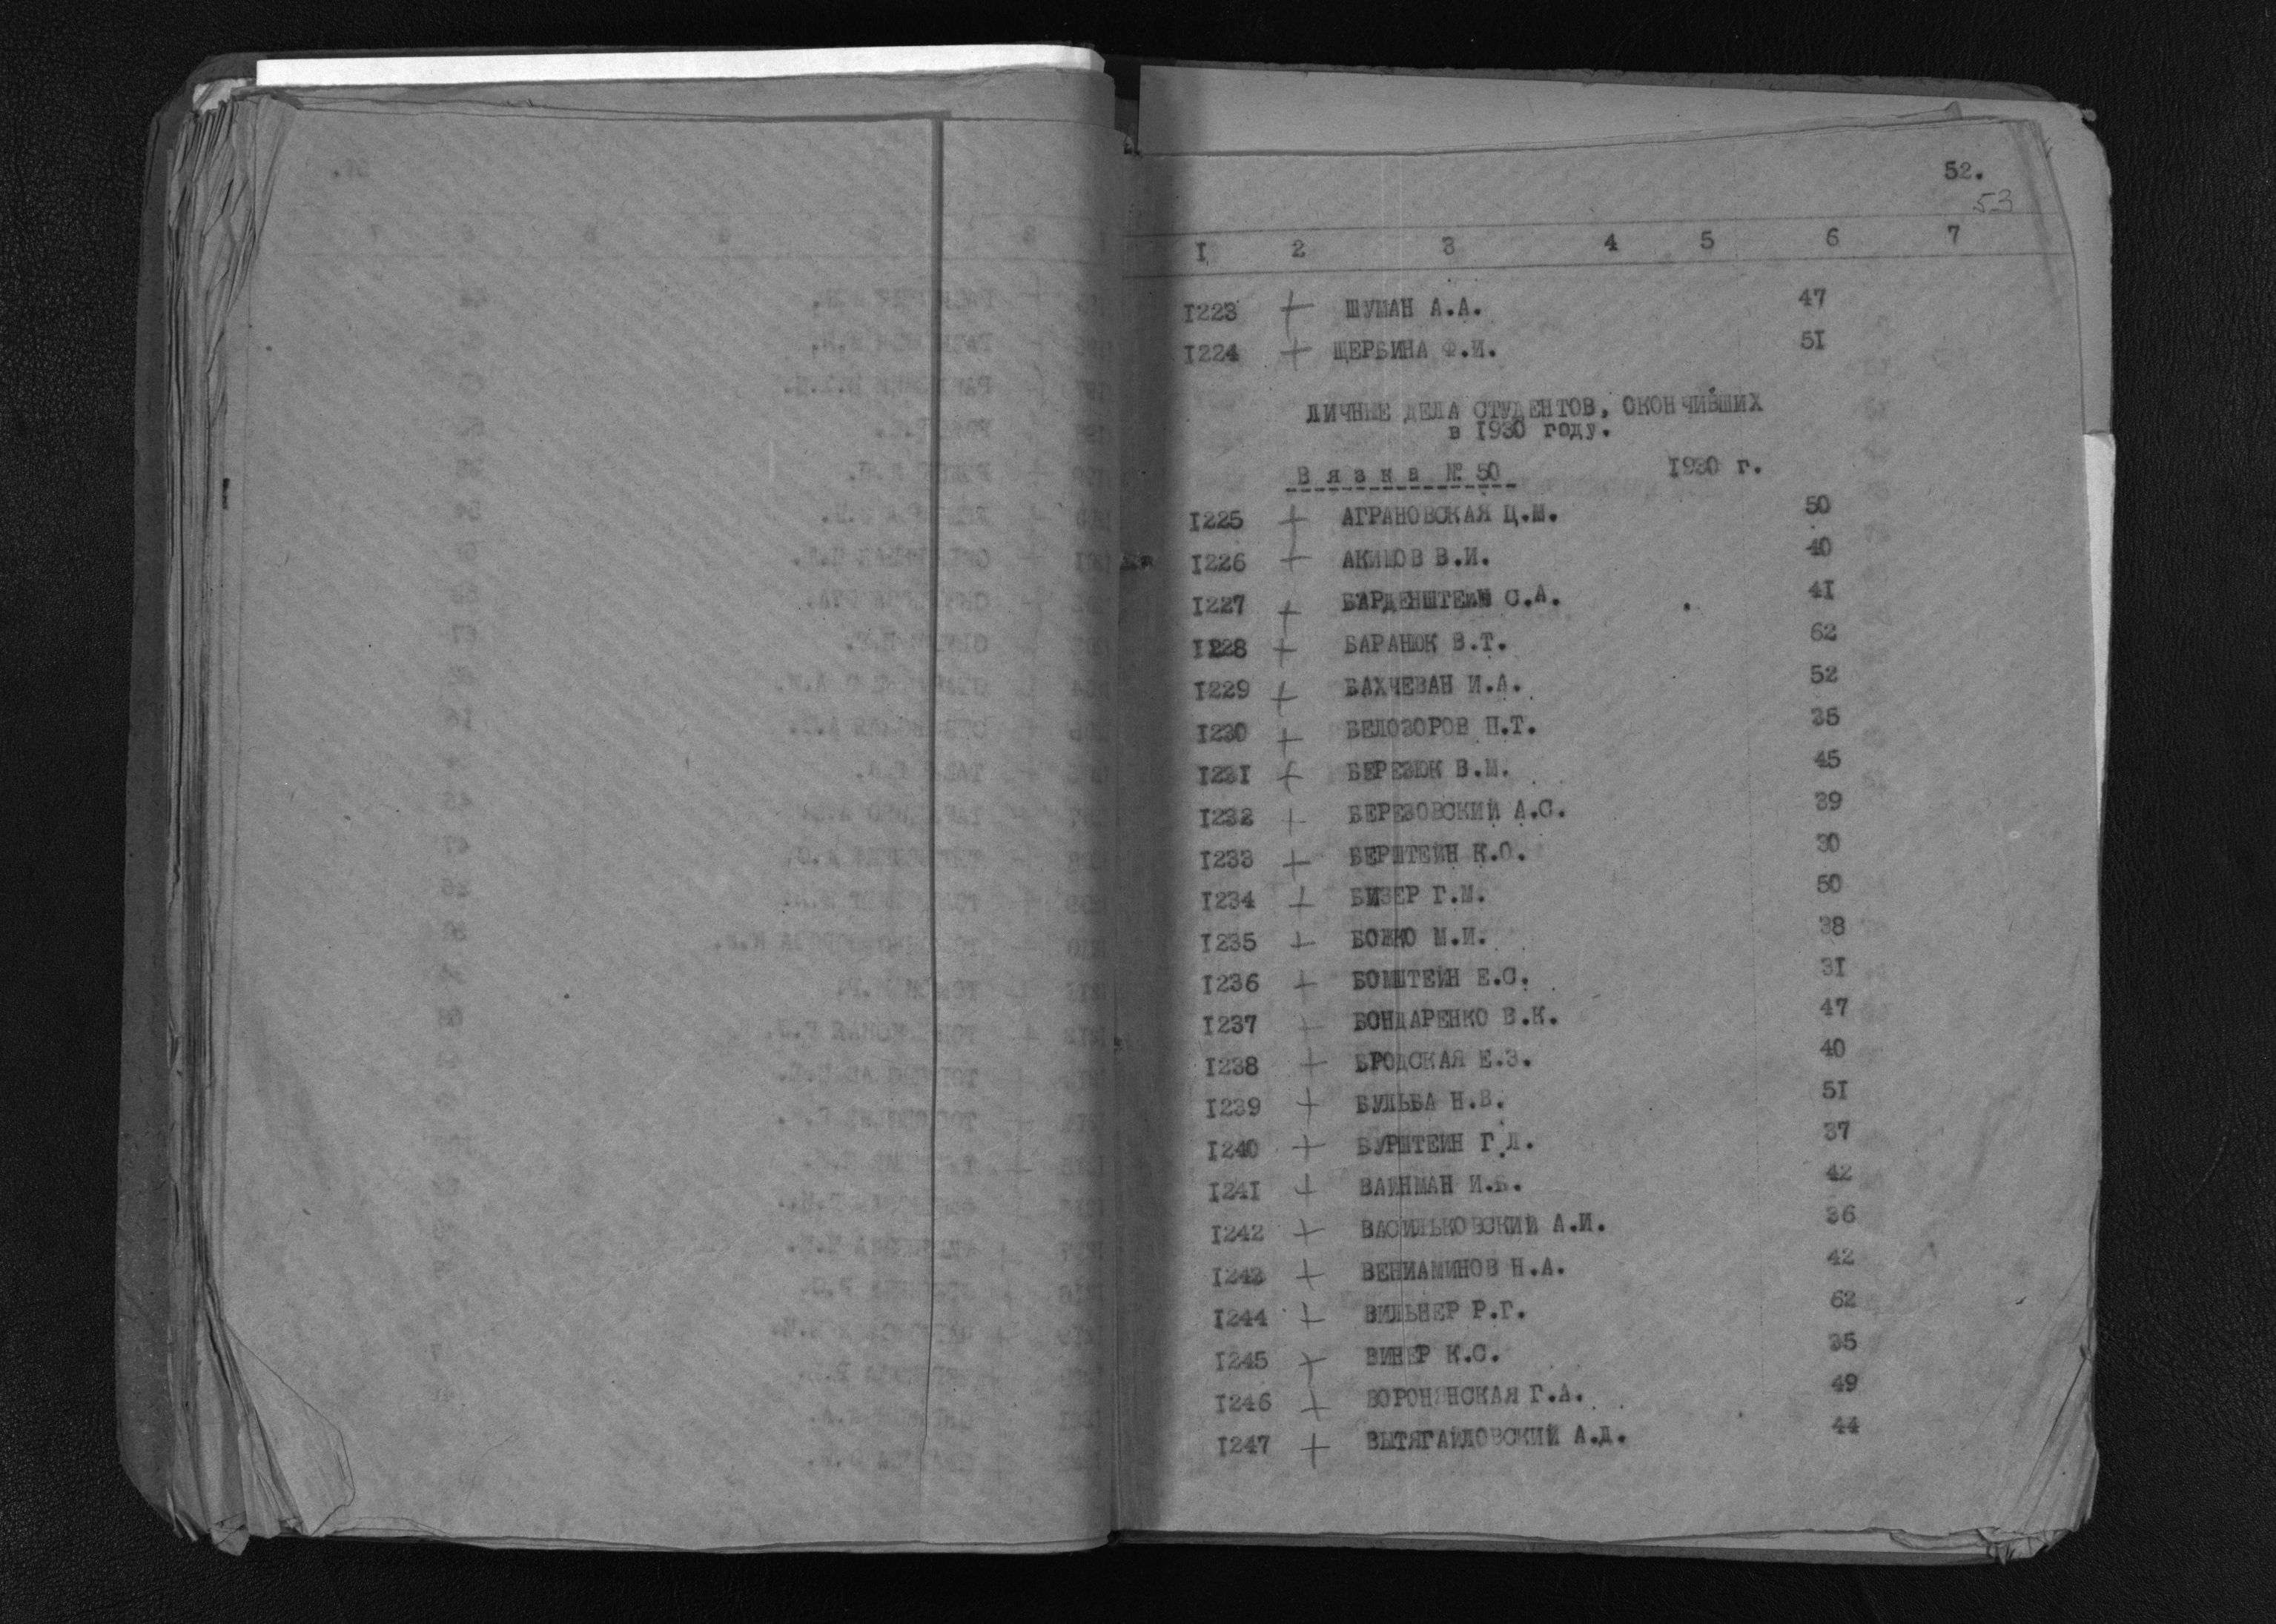 52.
53
I 2 3 4 5 6 7
I223 + ШУМАН А.А. 47
I224 + ЩЕРБИНА Ф.И. 5I
ЛИЧНЫЕ ДЕЛА СТУДЕНТОВ, ОКОНЧИВШИХ
в I930 году.
Вязка № 50 I930 г.
I225 + АГРАНОВСКАЯ Ц.М. 50
I226 + АКИМОВ В.И. 40
I227 + БАРДЕНШТЕЙН С.А. 4I
I228 + БАРАНЮК В.Т. 62
I229 + БАХЧЕВАН И.А. 52
I230 + БЕЛОЗОРОВ П.Т. 35
I231 + БЕРЕЗЮК В.М. 45
I232 + БЕРЕЗОВСКИЙ А.С. 39
I233 + БЕРШТЕЙН К.О. 30
I234 + БИЗЕР Г.М. 50
I235 + БОЖКО М.И. 38
I236 + БОМШТЕЙН Е.С. 3I
I237 + БОНДАРЕНКО В.К. 47
I238 + БРОДСКАЯ Е.З. 40
I239 + БУЛЬБА Н.В. 5I
I240 + БУРШТЕЙН Г.Л. 37
I24I + ВАЙНМАН И.Б. 42
I242 + ВАСИЛЬКОВСКИЙ А.И. 36
I243 + ВЕНИАМИНОВ Н.А. 42
I244 + ВИЛЬНЕР Р.Г. 62
I245 + ВИНЕР К.С. 35
I246 + ВОРОНЯНСКАЯ Г.А. 49
I247 + ВЫТЯГАЙЛОВСКИЙ А.Д. 44